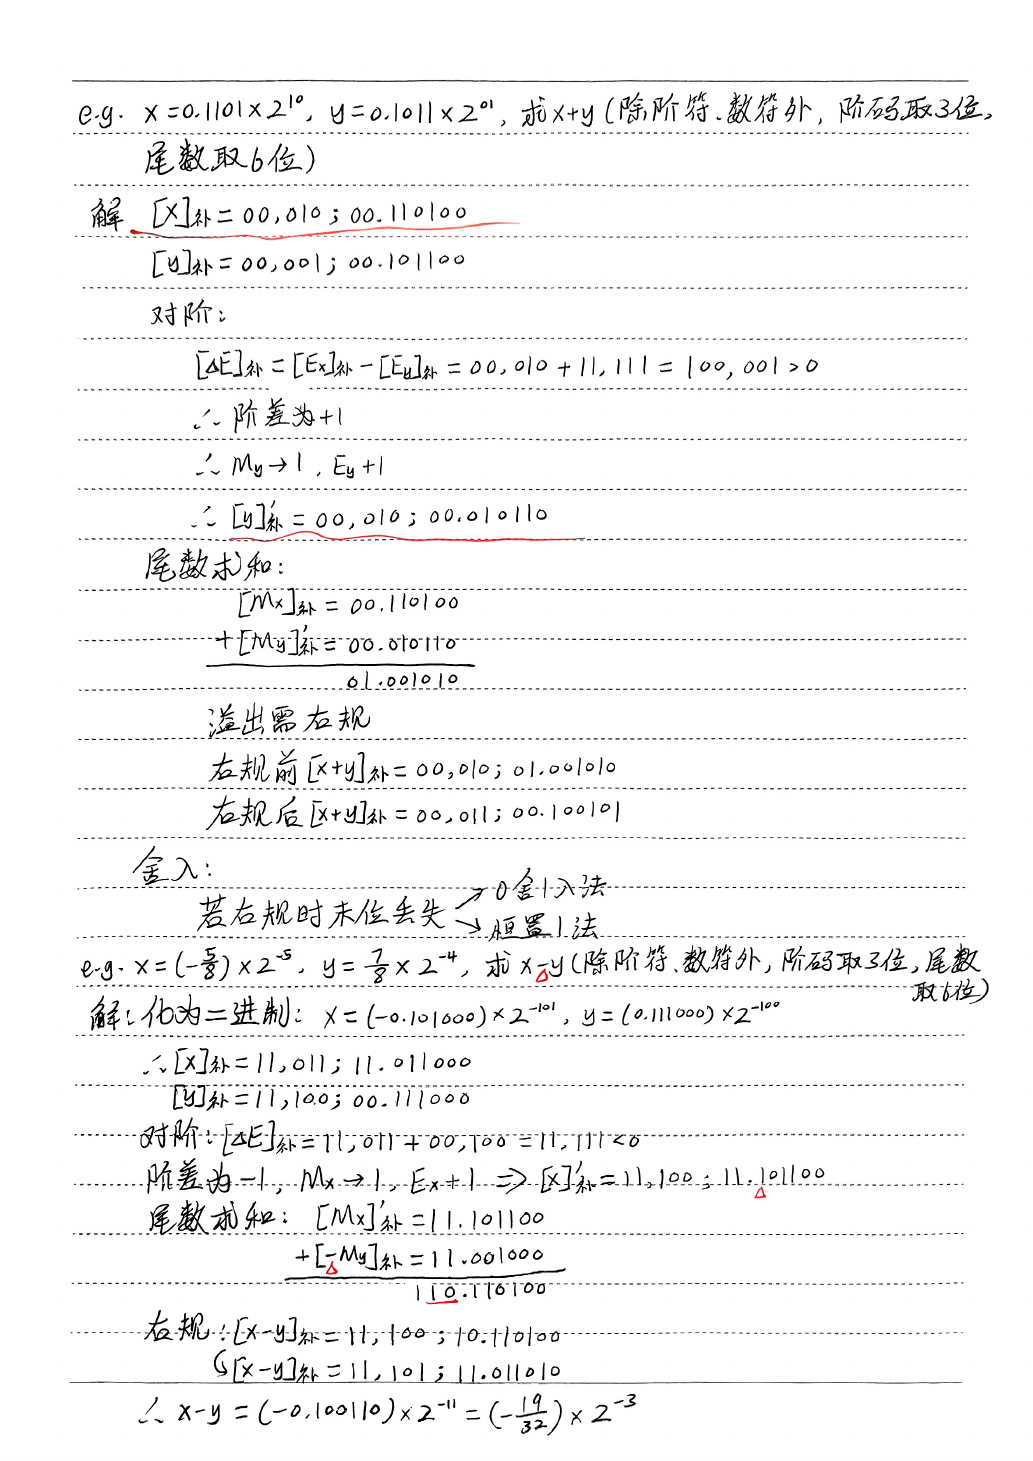 e.g. x=0.1101×2^10, y=0.1011×2^01, 求x+y(除阶符、数符外, 阶码取3位,
尾数取6位)
解 [X]补=00,010;00.110100
[y]补=00,001;00.101100
对阶:
[ΔE]补=[Ex]补-[Ey]补=00,010+11,111=100,001>0
∴阶差为+1
∴My→1, Ey+1
∴[y]'补=00,010;00.010110
尾数求和:
[Mx]补=00.110100
+[My]'补=00.010110
01.001010
溢出需右规
右规前[x+y]补=00,010;01.001010
右规后[x+y]补=00,011;00.100101
舍入:
0舍1入法
若右规时末位丢失
恒置1法
e.g. x=(-5/8)×2^-5, y=7/8×2^-4, 求x-y(除阶符、数符外,阶码取3位,尾数
取6位)
解:化为二进制: x=(-0.101000)×2^-101, y=(0.111000)×2^-100
∴[x]补=11,011;11.011000
[y]补=11,100;00.111000
对阶:[ΔE]补=11,011+00,100=11,111<0
阶差为-1, Mx→1, Ex+1 ⇒[x]'补=11,100;11.101100
尾数求和: [Mx]'补=11.101100
+[-My]补=11.001000
110.110100
右规:[x-y]补=11,100;10.110100
[x-y]补=11,101;11.011010
∴ x-y=(-0.100110)×2^-11=(-19/32)×2^-3